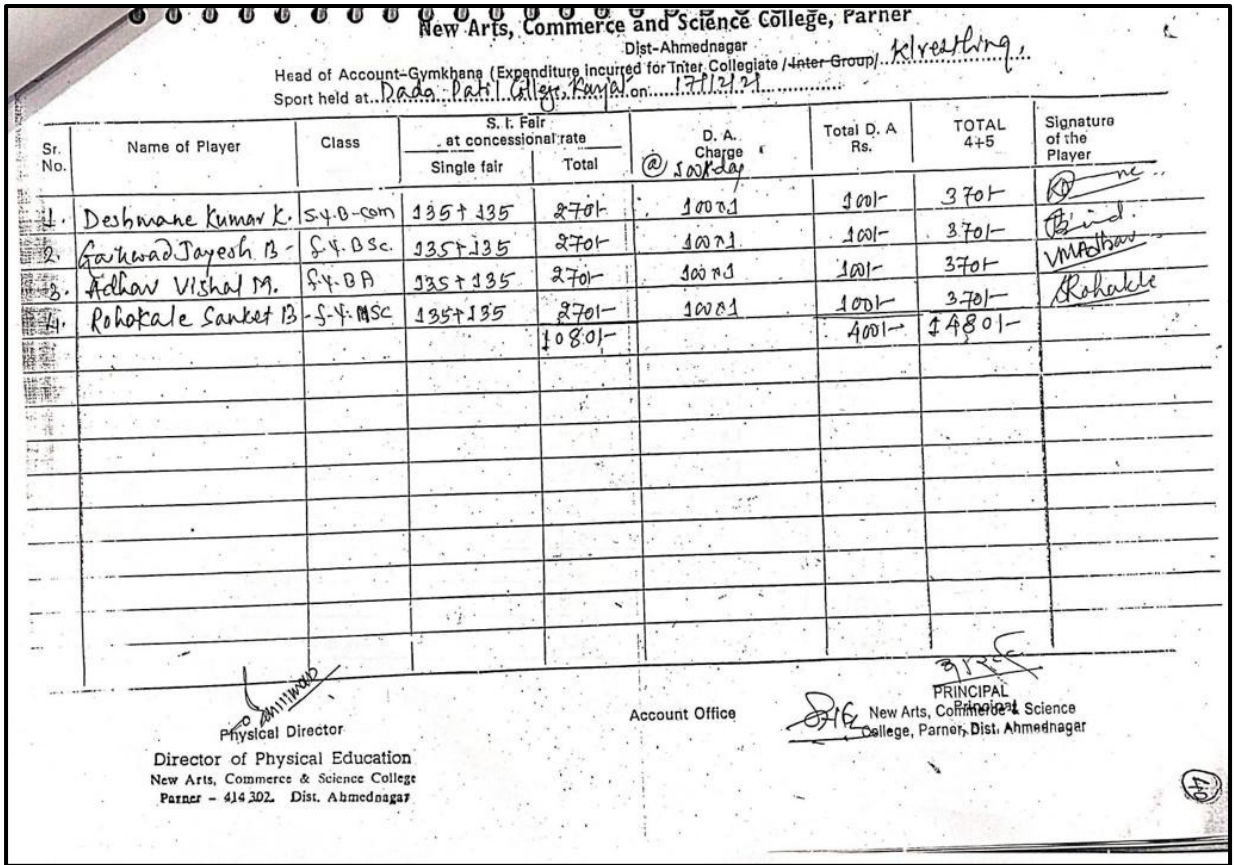 New Arts, Commerce and Science College, Parner
Dist-Ahmednagar
Head of Account-Gymkhana (Expenditure incurred for Inter Collegiate / Inter Group/ Wrestling.
Sport held at Dada Patil College, Karjat on 17/12/21
Sr. No. Name of Player Class S. t. Fair at concessional rate Single fair Total D. A. Charge @ 100/day Total D. A Rs. TOTAL 4+5 Signature of the Player
1. Deshmane Kumar K. S.Y.B-com 135+135 270/- 100x1 100/- 370/-
2. Gaikwad Jayesh B- F.Y.BSc. 135+135 270/- 100x1 100/- 370/-
3. Adhav Vishal M. F.Y.BA 135+135 270/- 100x1 100/- 370/- VMAdhav
4. Rohokale Sanket B - F.Y.MSC 135+135 270/- 100x1 100/- 370/- Rohakle
1080/- 400/- 1480/-
Physical Director
Director of Physical Education
New Arts, Commerce & Science College
Parner - 414 302. Dist. Ahmednagar
Account Office
PRINCIPAL
Principal
New Arts, Commerce & Science
College, Parner, Dist. Ahmednagar